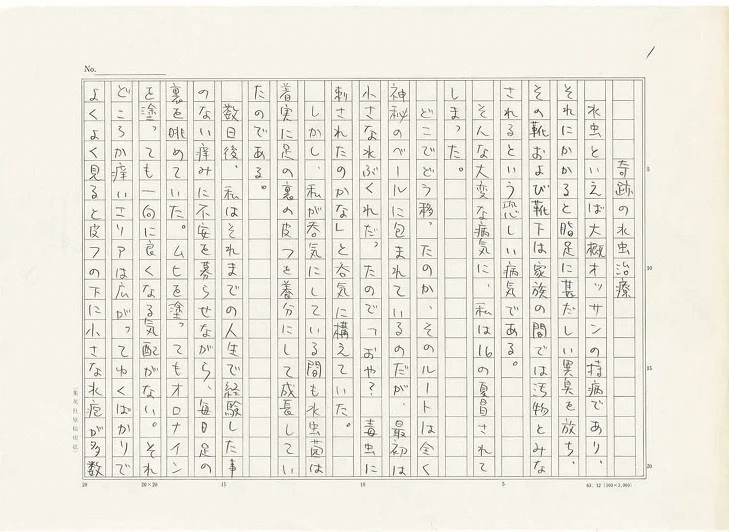 No.
奇跡の水虫治療
水虫といえば大概オッサンの持病であり、
それにかかると脂足に甚だしい異臭を放ち、
その靴および靴下は家族の間では汚物とみな
されるという恐しい病気である。
そんな大変な病気に、私は16の夏冒されて
しまった。
どこでどう移ったのか、そのルートは全く
神秘のベールに包まれているのだが、最初は
小さな水ぶくれだったので「おや？ 毒虫に
刺されたのかな」と呑気に構えていた。
しかし、私が呑気にしている間も水虫菌は
着実に足の裏の皮フを養分にして成長してい
たのである。
数日後、私はそれまでの人生で経験した事
のない痒みに不安を募らせながら、毎日足の
裏を眺めていた。ムヒを塗ってもオロナイン
を塗っても一向に良くなる気配がない。それ
どころか痒いエリアは広がってゆくばかりで
よくよく見ると皮フの下に小さな水疱が多数
5
10
15
20
20
20×20
15
10
5
63. 12 (100×3,000)